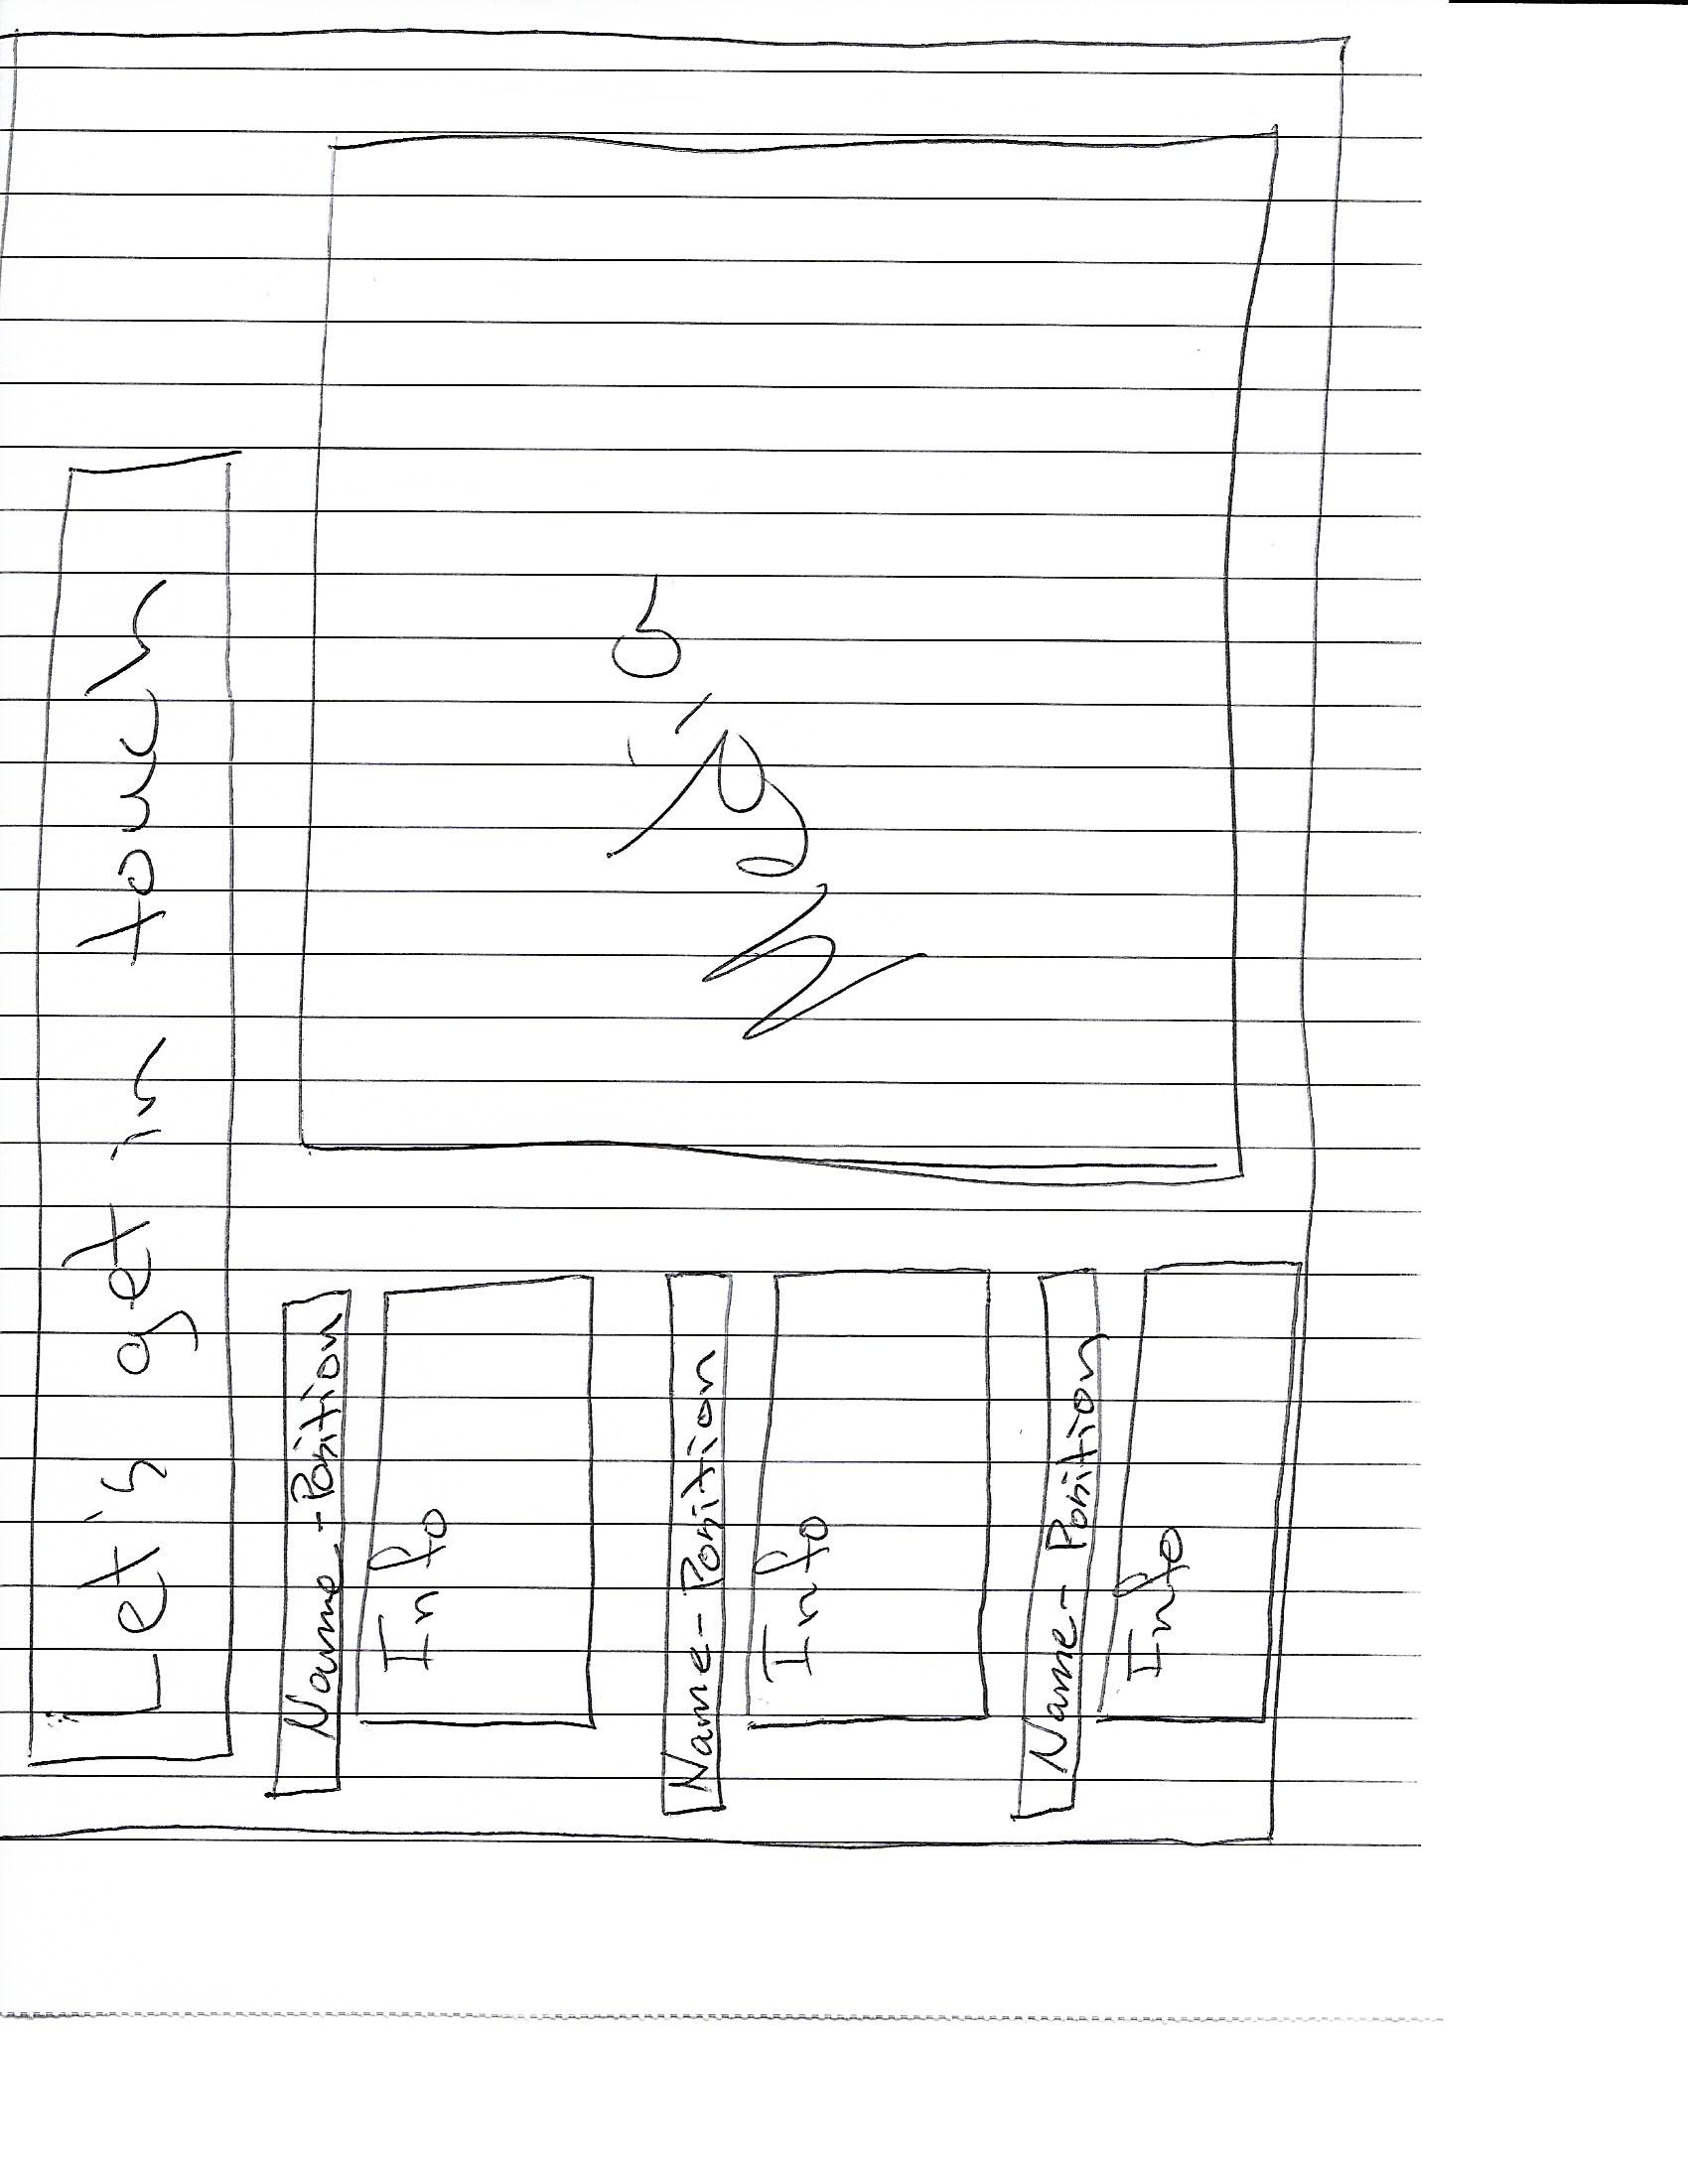 Let's get in touch
Name-Position
Info
Name-Position
Info
Name-Position
Info
Media